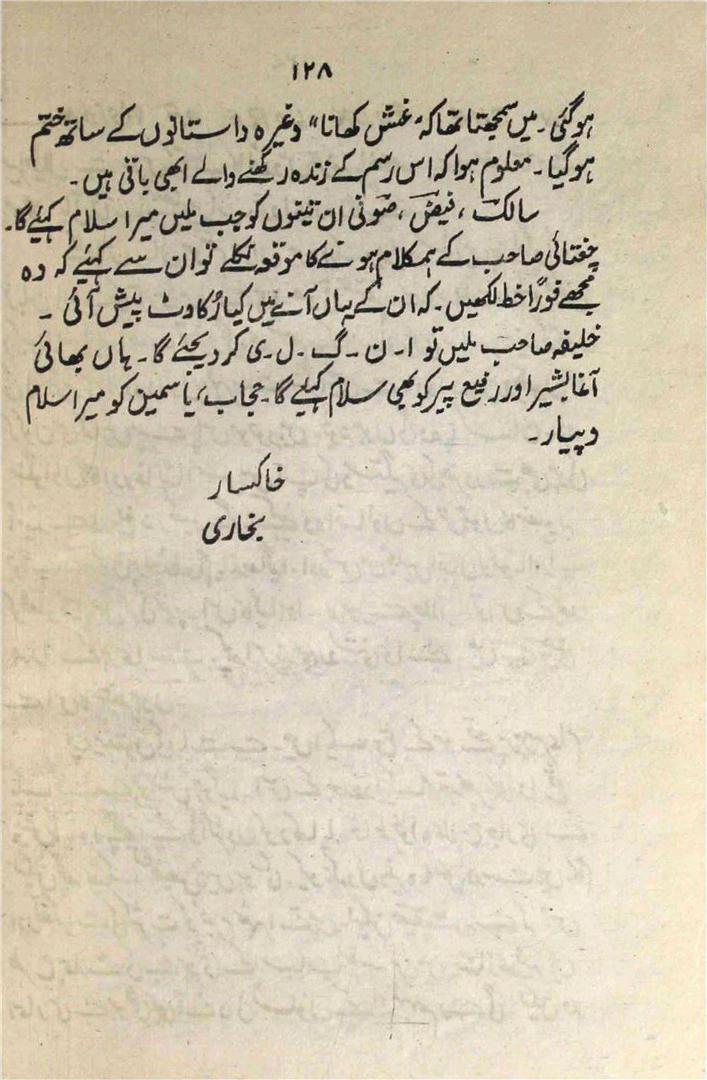 ۱۲۸
ہوگئی۔ میں سمجھتا تھا کہ "غش کھانا" وغیرہ داستانوں کے ساتھ ختم
ہوگیا۔ معلوم ہوا کہ اس رسم کے زندہ رکھنے والے ابھی باقی ہیں۔
سالکؔ، فیضؔ، صوفی ان تینوں کو جب ملیں میرا سلام کہیئے گا۔
چغتائی صاحب کے ہمکلام ہونے کا موقعہ نکلے تو ان سے کہیئے کہ وہ
مجھے فوراً خط لکھیں۔ کہ ان کے یہاں آنے میں کیا رُکاوٹ پیش آئی۔
خلیفہ صاحب ملیں تو ا۔ ن۔ گ۔ ل۔ ی کر دیجئے گا۔ ہاں بھائی
آغا بشیر اور رفیع پیر کو بھی سلام کہیئے گا۔ حجاب، یاسمین کو میرا سلام
و پیار۔
خاکسار
بخاری